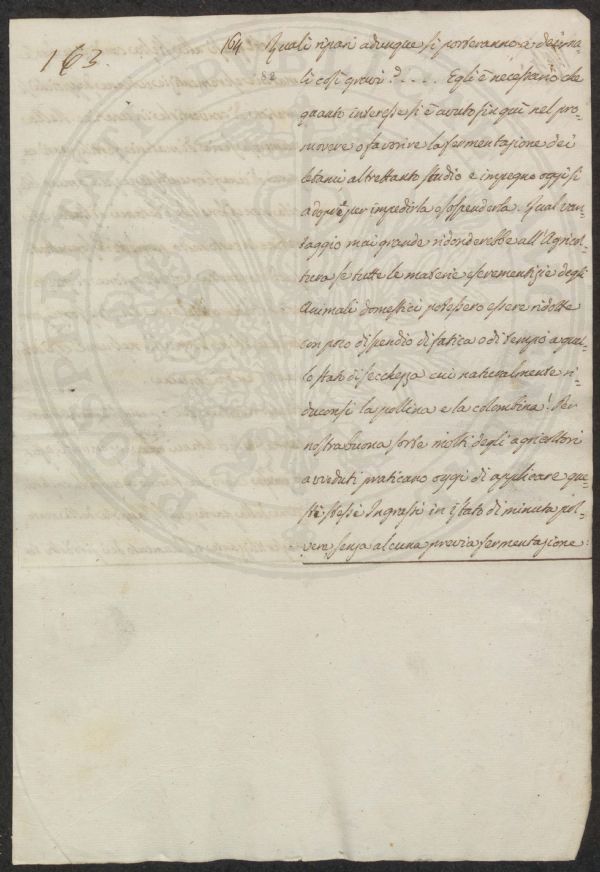 163.
164 Quali ripari adunque si porteranno a dei ma-
li così gravi? .... Egli è necessario che
82
quanto interesse si è avuto fin quì nel pro-
muovere o favorire la fermentazione dei
letami altrettanto studio e impegno oggi si
adopri per impedirla o sospenderla. Qual van-
taggio mai grande ridonderebbe all'Agricol-
tura se tutte le materie escrementizie degli
Animali domestici potessero essere ridotte
con poco dispendio di fatica o di tempo a quel-
lo stato di secchezza cui naturalmente ri-
duconsi la pollina e la colombina! Per
nostra buona sorte molti degli agricoltori
avveduti praticano oggi di applicare que-
sti stessi Ingrassi in istato di minuta pol-
vere senza alcuna previa fermentazione: